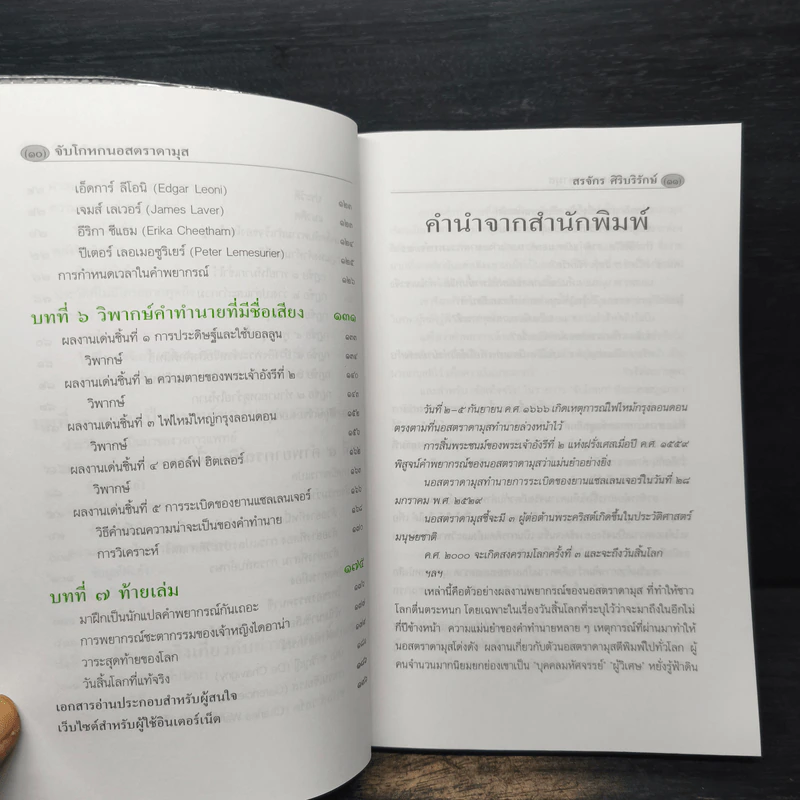 (๑๐) จับโกหกนอสตราดามุส
เอ็ดการ์ ลีโอนิ (Edgar Leoni) ๑๒๓
เจมส์ เลเวอร์ (James Laver) ๑๒๓
อีริกา ชีแธม (Erika Cheetham) ๑๒๔
ปีเตอร์ เลอเมอซูริเยร์ (Peter Lemesurier) ๑๒๕
การกำหนดเวลาในคำพยากรณ์ ๑๒๖
บทที่ ๖ วิพากษ์คำทำนายที่มีชื่อเสียง ๑๓๑
ผลงานเด่นชิ้นที่ ๑ การประดิษฐ์และใช้บอลลูน ๑๓๓
วิพากษ์ ๑๓๔
ผลงานเด่นชิ้นที่ ๒ ความตายของพระเจ้าอังรีที่ ๒ ๑๔๐
วิพากษ์ ๑๔๓
ผลงานเด่นชิ้นที่ ๓ ไฟไหม้ใหญ่กรุงลอนดอน ๑๕๒
วิพากษ์ ๑๕๖
ผลงานเด่นชิ้นที่ ๔ อดอล์ฟ ฮิตเลอร์ ๑๖๒
วิพากษ์ ๑๖๓
ผลงานเด่นชิ้นที่ ๕ การระเบิดของยานแชลเลนเจอร์ ๑๖๖
วิธีคำนวณความน่าจะเป็นของคำทำนาย ๑๖๘
การวิเคราะห์
บทที่ ๗ ท้ายเล่ม ๑๗๕
มาฝึกเป็นนักแปลคำพยากรณ์กันเถอะ
การพยากรณ์ชะตากรรมของเจ้าหญิงไดอาน่า
วาระสุดท้ายของโลก
วันสิ้นโลกที่แท้จริง
เอกสารอ่านประกอบสำหรับผู้สนใจ
เว็บไซต์สำหรับผู้ใช้อินเตอร์เน็ต
สรจักร ศิริบริรักษ์ (๑๑)
คำนำจากสำนักพิมพ์
วันที่ ๒-๕ กันยายน ค.ศ. ๑๖๖๖ เกิดเหตุการณ์ไฟไหม้กรุงลอนดอน
ตรงตามที่นอสตราดามุสทำนายล่วงหน้าไว้
การสิ้นพระชนม์ของพระเจ้าอังรีที่ ๒ แห่งฝรั่งเศสเมื่อปี ค.ศ. ๑๕๕๙
พิสูจน์คำพยากรณ์ของนอสตราดามุสว่าแม่นยำอย่างยิ่ง
นอสตราดามุสทำนายการระเบิดของยานแชลเลนเจอร์ในวันที่ ๒๘
มกราคม พ.ศ. ๒๕๒๙
นอสตราดามุสชี้จะมี ๓ ผู้ต่อต้านพระคริสต์เกิดขึ้นในประวัติศาสตร์
มนุษยชาติ
ค.ศ. ๒๐๐๐ จะเกิดสงครามโลกครั้งที่ ๓ และจะถึงวันสิ้นโลก
ฯลฯ
เหล่านี้คือตัวอย่างผลงานพยากรณ์ของนอสตราดามุส ที่ทำให้ชาว
โลกตื่นตระหนก โดยเฉพาะในเรื่องวันสิ้นโลกที่ระบุไว้ว่าจะมาถึงในอีกไม่
กี่ปีข้างหน้า ความแม่นยำของคำทำนายหลาย ๆ เหตุการณ์ที่ผ่านมาทำให้
นอสตราดามุสโด่งดัง ผลงานเกี่ยวกับตัวนอสตราดามุสตีพิมพ์ไปทั่วโลก ผู้
คนจำนวนมากนิยมยกย่องเขาเป็น 'บุคคลมหัศจรรย์' 'ผู้วิเศษ' หยั่งรู้ฟ้าดิน